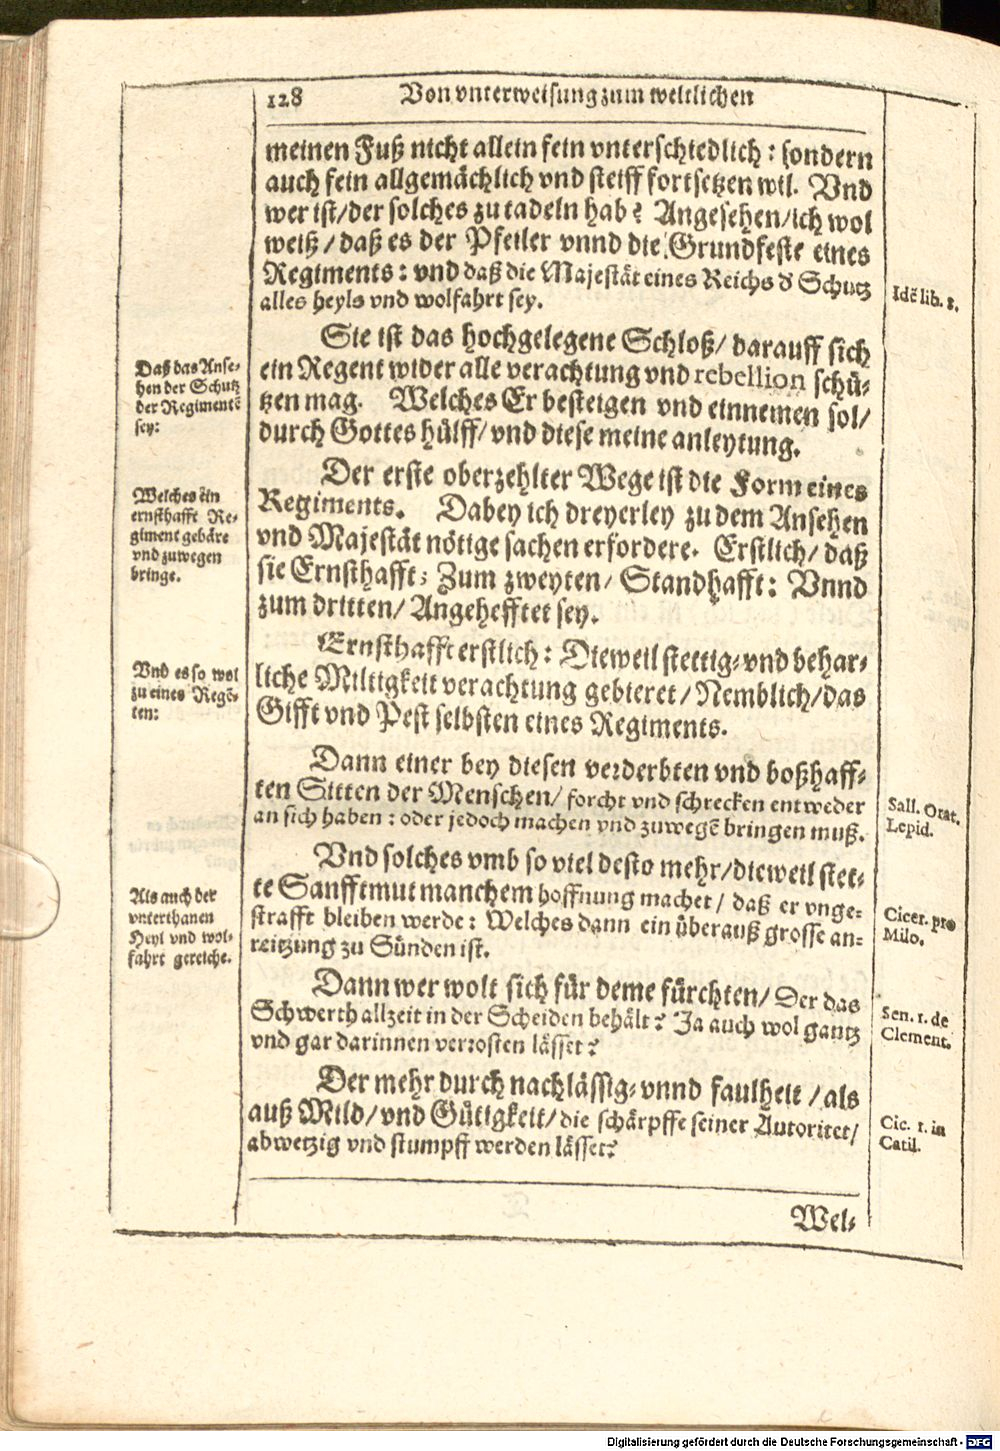 128 Von vnterweisung zum weltlichen
meinen Fuß nicht allein fein vnterschiedlich: sondern
auch fein allgemächlich vnd steiff fortsetzen wil. Vnd
wer ist/der solches zu tadeln hab? Angesehen/ich wol
weiß/daß es der Pfeiler vnnd die Grundfeste eines
Regiments: vnd daß die Majestät eines Reichs d' Schutz
alles heyls vnd wolfahrt sey.
Idē lib. 1.
Sie ist das hochgelegene Schloß/ darauff sich
ein Regent wider alle verachtung vnd rebellion schü-
tzen mag. Welches Er besteigen vnd einnemen sol/
durch Gottes hülff/ vnd diese meine anleytung.
Daß das Anse-
hen der Schutz
der Regimentē
sey:
Der erste oberzehlter Wege ist die Form eines
Regiments. Dabey ich dreyerley zu dem Ansehen
vnd Majestät nötige sachen erfordere. Erstlich/ daß
sie Ernsthafft; Zum zweyten/ Standhafft: Vnnd
zum dritten/ Angehefftet sey.
Welches ein
ernsthafft Re-
giment gebäre
vnd zuwegen
bringe.
Ernsthafft erstlich: Dieweil stettig-vnd behar-
liche Miltigkeit verachtung gebieret/ Nemblich/das
Gifft vnd Pest selbsten eines Regiments.
Vnd es so wol
zu eines Regē-
ten:
Dann einer bey diesen verderbten vnd boßhaff-
ten Sitten der Menschen/ forcht vnd schrecken entweder
an sich haben: oder jedoch machen vnd zuwegē bringen muß.
Sall. Orat.
Lepid.
Vnd solches vmb so viel desto mehr/dieweil stet-
te Sanfftmut manchem hoffnung machet/ daß er vnge-
strafft bleiben werde: Welches dann ein überauß grosse an-
reitzung zu Sünden ist.
Als auch der
vnterthanen
Heyl vnd wol-
fahrt gereiche.
Cicer. pro
Milo.
Dann wer wolt sich für deme fürchten/ Der das
Schwerth allzeit in der Scheiden behält? Ja auch wol gantz
vnd gar darinnen verrosten lässet?
Sen. 1. de
Clement.
Der mehr durch nachlässig-vnnd faulheit /als
auß Mild/ vnd Gütigkeit/ die schärpffe seiner Autoritet/
abwetzig vnd stumpff werden lässet?
Cic. 1. in
Catil.
Wel-
Digitalisierung gefördert durch die Deutsche Forschungsgemeinschaft - DFG